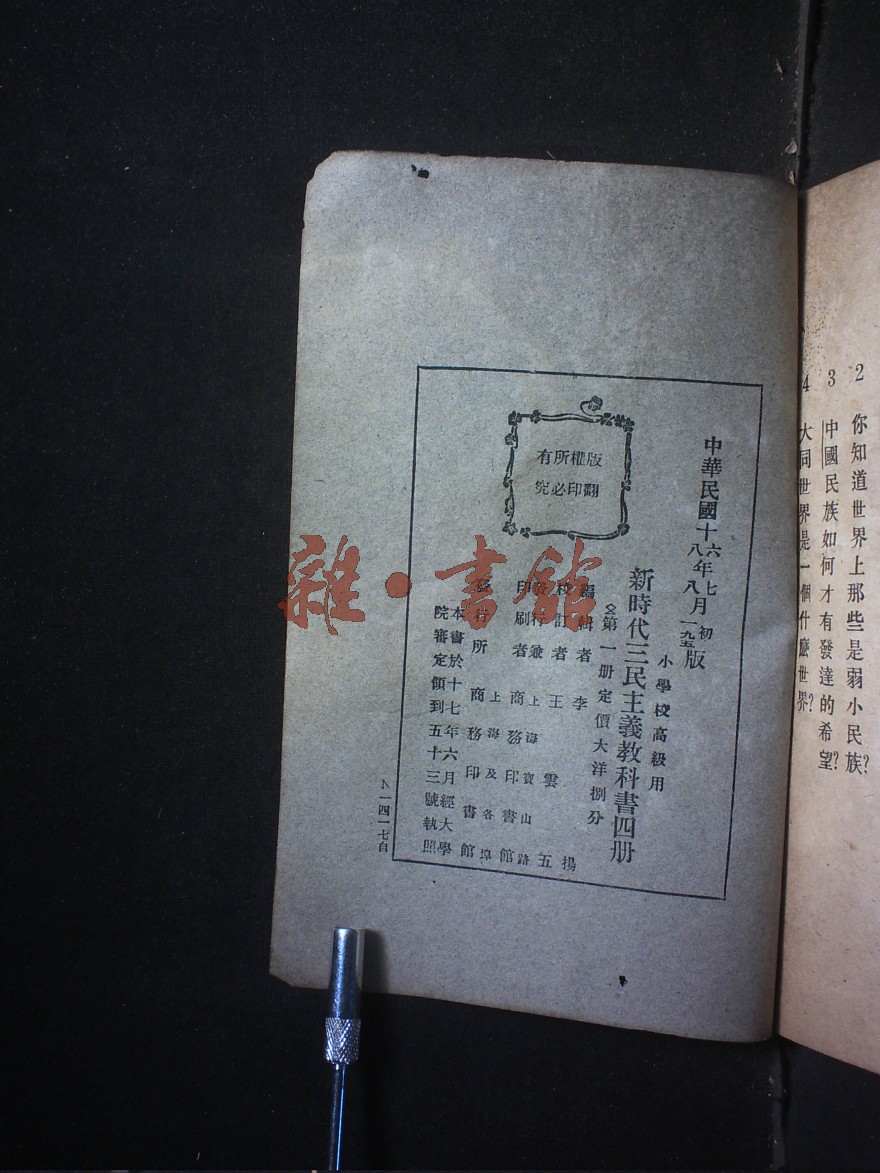 2 你知道世界上那些是弱小民族?
3 中國民族如何才有發達的希望?
4 大同世界是一個什麼世界?
版權所有
翻印必究
中華民國十六年七月初版
十八年八月一九五版
小學校高級用
新時代三民主義教科書四册
(第一册定價大洋捌分
編輯者 李揚
校訂者 王雲五
發行兼印刷者 上海寶山路 商務印書館
發行所 上海及各埠 商務印書館
本書於十七年六月經大學
院審定領到五十三號執照
一四一七自
雜·書館